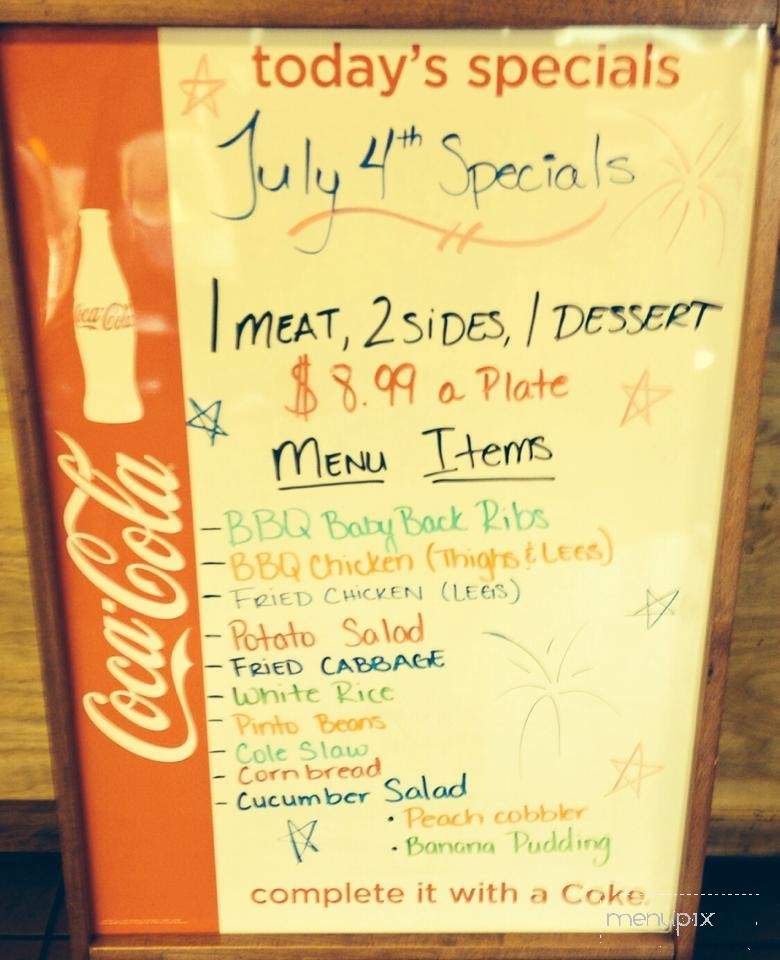 today's specials
July 4th Specials
1 MEAT, 2 SiDES, 1 DESSERT
$8.99 a Plate
MENU Items
- BBQ Baby Back Ribs
- BBQ Chicken (Thighs & LEGS)
- FRIED CHICKEN (LEGS)
- Potato Salad
- FRIED CABBAGE
- White Rice
- Pinto Beans
- Cole Slaw
- Cornbread
- Cucumber Salad
• Peach cobbler
• Banana Pudding
complete it with a Coke.
Coca-Cola
Coca-Cola
menupix